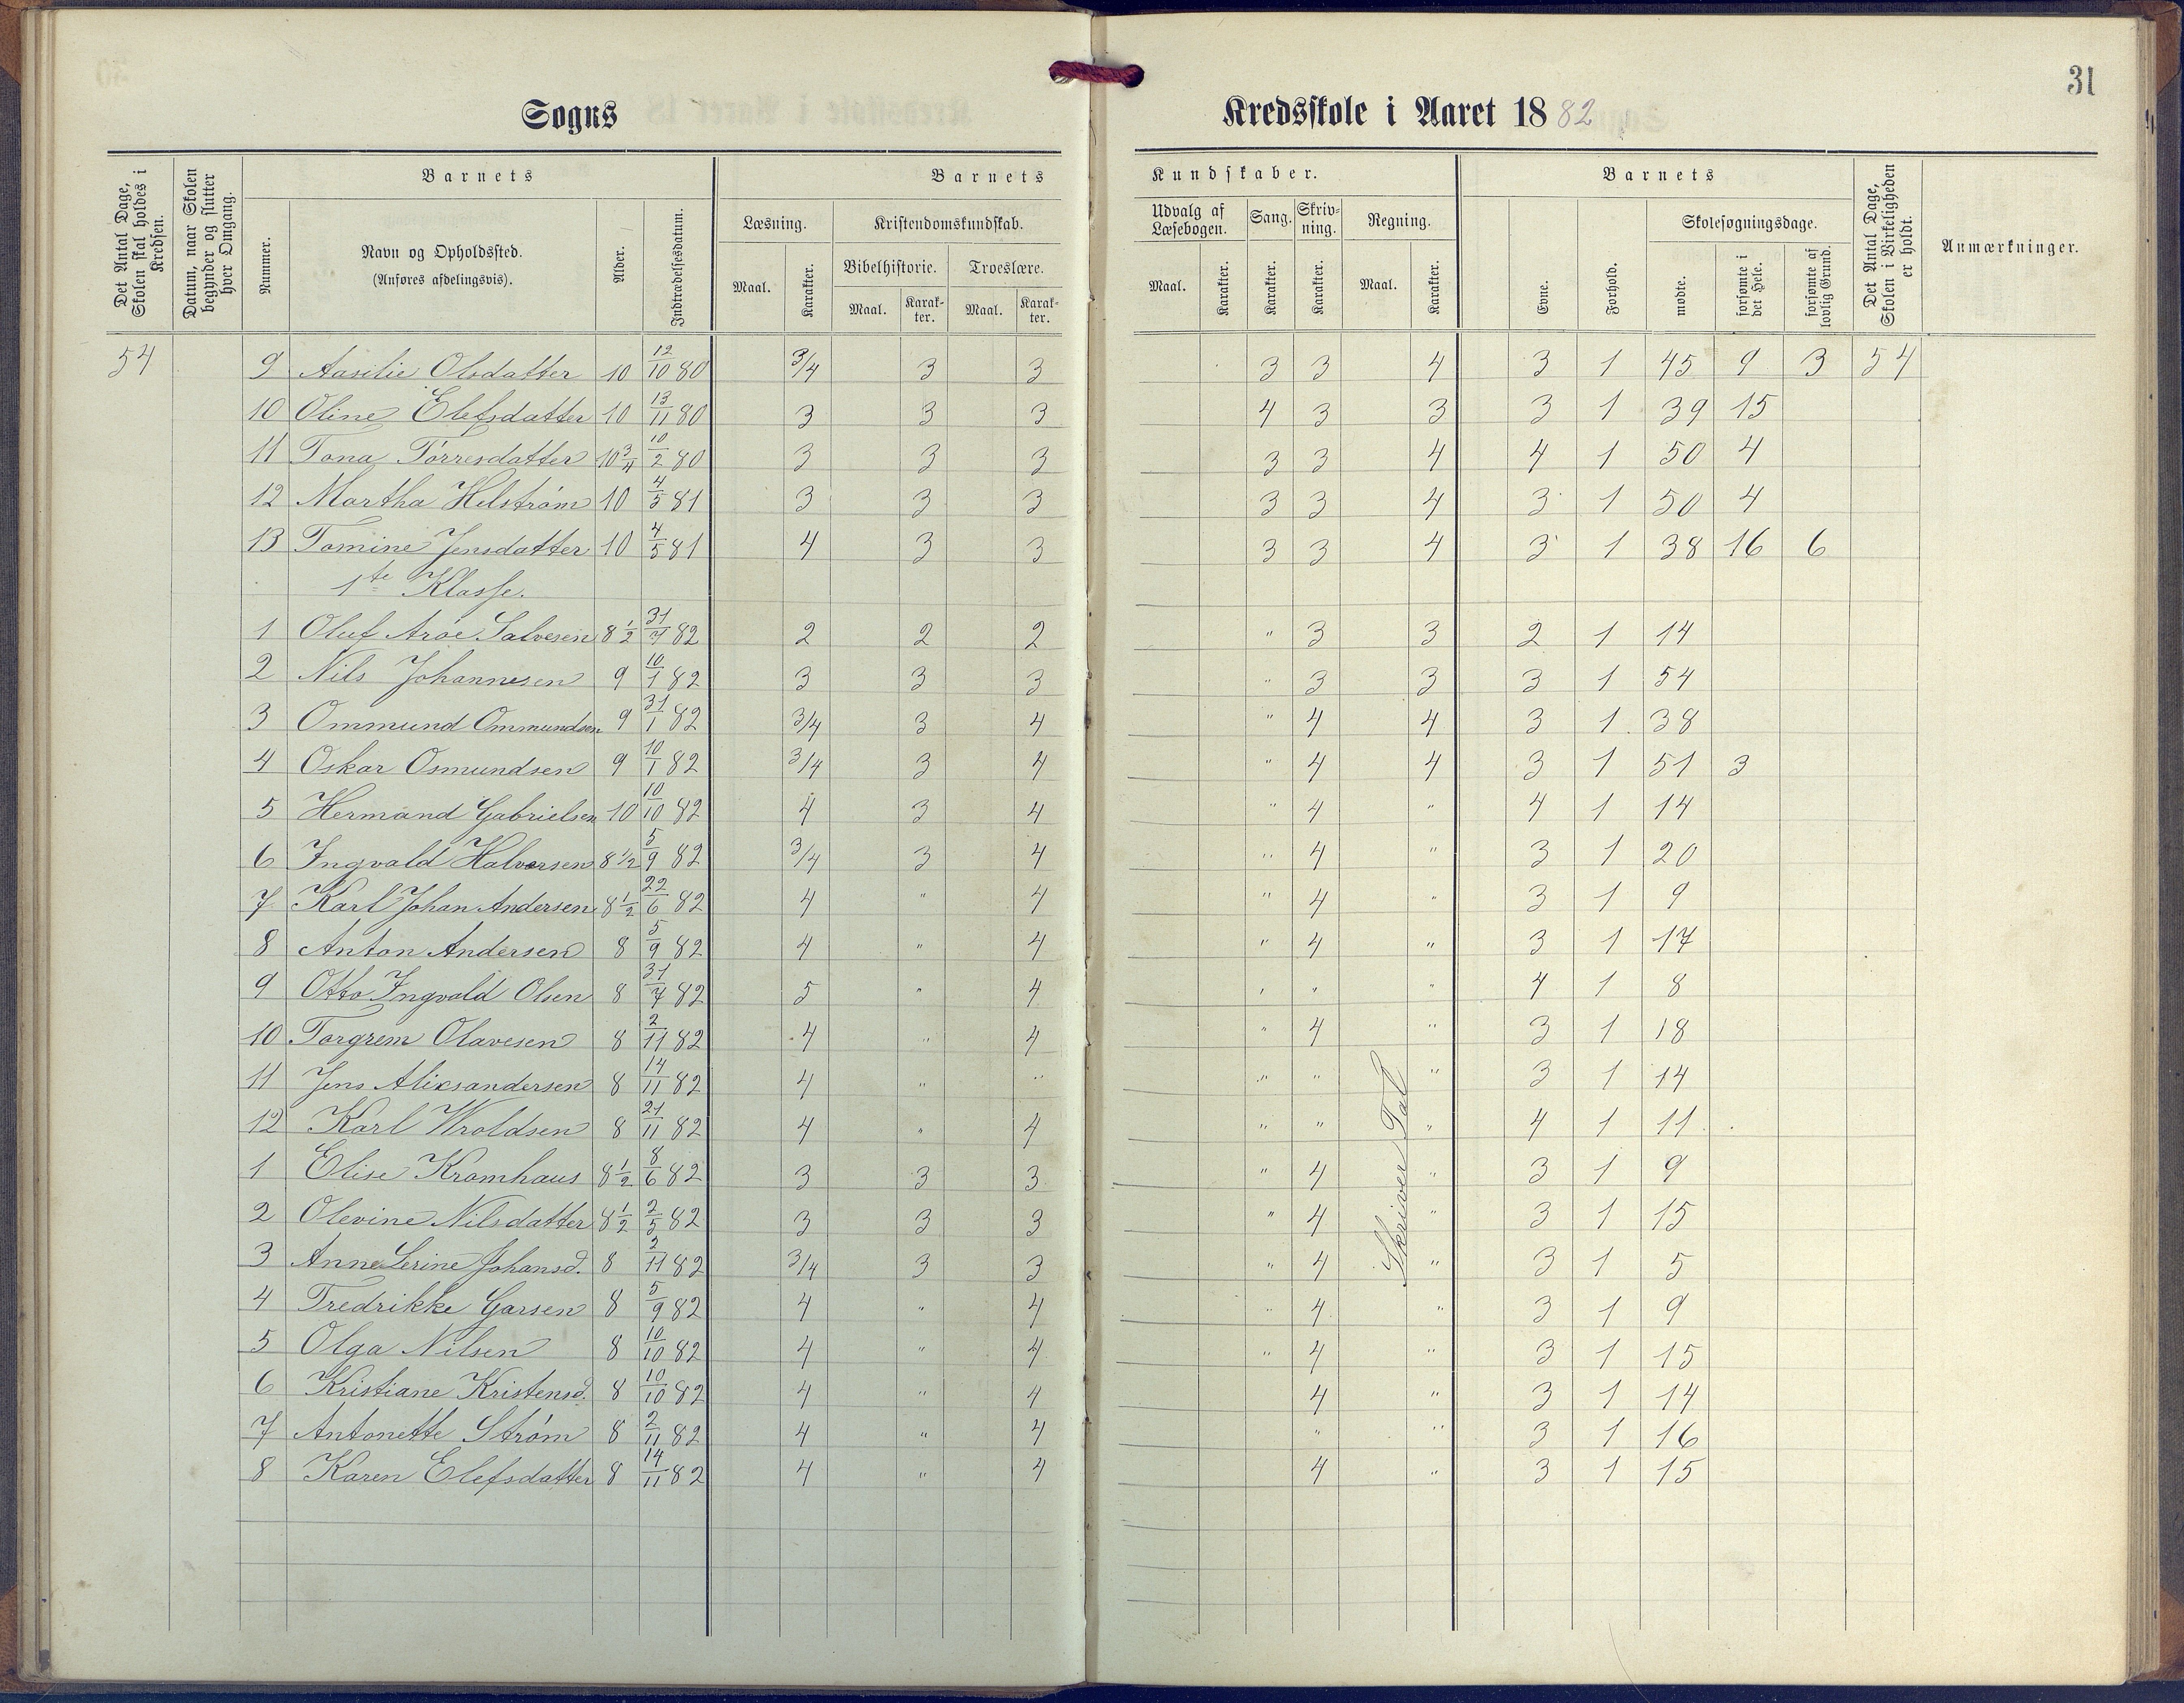 31
Sogns Kredsskole i Aaret 1882
Det Antal Dage, Skolen skal holdes i Kredsen.
Datum, naar Skolen begynder og slutter hver Omgang.
Barnets
Nummer.
Navn og Opholdssted.
(Anføres afdelingsvis).
Alder.
Indtrædelsesdatum.
Barnets Kundskaber.
Læsning.
Maal. Karakter.
Kristendomskundskab.
Bibelhistorie. Troeslære.
Maal. Karakter. Maal. Karakter.
Udvalg af Læsebogen.
Maal. Karakter.
Sang.
Karakter.
Skrivning.
Karakter.
Regning.
Maal. Karakter.
Barnets
Evne.
Forhold.
Skolesøgningsdage.
mødte.
forsømte i det Hele.
forsømte af lovlig Grund.
Det Antal Dage, Skolen i Virkeligheden er holdt.
Anmærkninger.
54 9 Aasilie Olsdatter 10 12/10 80 3/4 3 3 3 3 4 3 1 45 9 3 54
10 Oline Elefsdatter 10 13/11 80 3 3 3 4 3 3 3 1 39 15
11 Tona Tørresdatter 10 3/4 10/2 80 3 3 3 3 3 4 4 1 50 4
12 Martha Helstrøm 10 4/5 81 3 3 3 3 3 4 3 1 50 4
13 Tomine Jensdatter 10 4/5 81 4 3 3 3 3 4 3 1 38 16 6
1te Klasse.
1 Oluf Arøe Salvesen 8 1/2 31/7 82 2 2 2 " 3 3 2 1 14
2 Nils Johannesen 9 10/1 82 3 3 3 " 3 3 3 1 54
3 Ommund Ommundsen 9 31/1 82 3/4 3 4 " 4 4 3 1 38
4 Oskar Osmundsen 9 10/1 82 3/4 3 4 " 4 4 3 1 51 3
5 Hermand Gabrielsen 10 10/10 82 4 3 4 " 4 " 4 1 14
6 Ingvald Halvorsen 8 1/2 5/9 82 3/4 3 4 " 4 " 3 1 20
7 Karl Johan Andersen 8 1/2 22/6 82 4 " 4 " 4 " 3 1 9
8 Anton Andersen 8 5/9 82 4 " 4 " 4 " 3 1 17
9 Otto Ingvald Olsen 8 31/7 82 5 " 4 " " " 4 1 8
10 Torgrem Olavesen 8 2/11 82 4 " 4 " 4 " 3 1 18
11 Jens Aliksandersen 8 14/11 82 4 " " " " " 3 1 14
12 Karl Wroldsen 8 21/11 82 4 " 4 " " " 4 1 11
1 Elise Kromhaus 8 1/2 8/6 82 3 3 3 " 4 " 3 1 9
2 Olevine Nilsdatter 8 1/2 2/5 82 3 3 3 " 4 " 3 1 15
3 Anne Serine Johansd. 8 2/11 82 3/4 3 3 " 4 " 3 1 5
4 Fredrikke Garsen 8 5/9 82 4 " 4 " 4 " 3 1 9
5 Olga Nilsen 8 10/10 82 4 " 4 " 4 " 3 1 15
6 Kristiane Kristensd. 8 10/10 82 4 " 4 4 " 3 1 14
7 Antonette Strøm 8 2/11 82 4 " 4 " " 3 1 16
8 Karen Elefsdatter 8 14/11 82 4 " 4 4 " 3 1 15
Skriver Tal